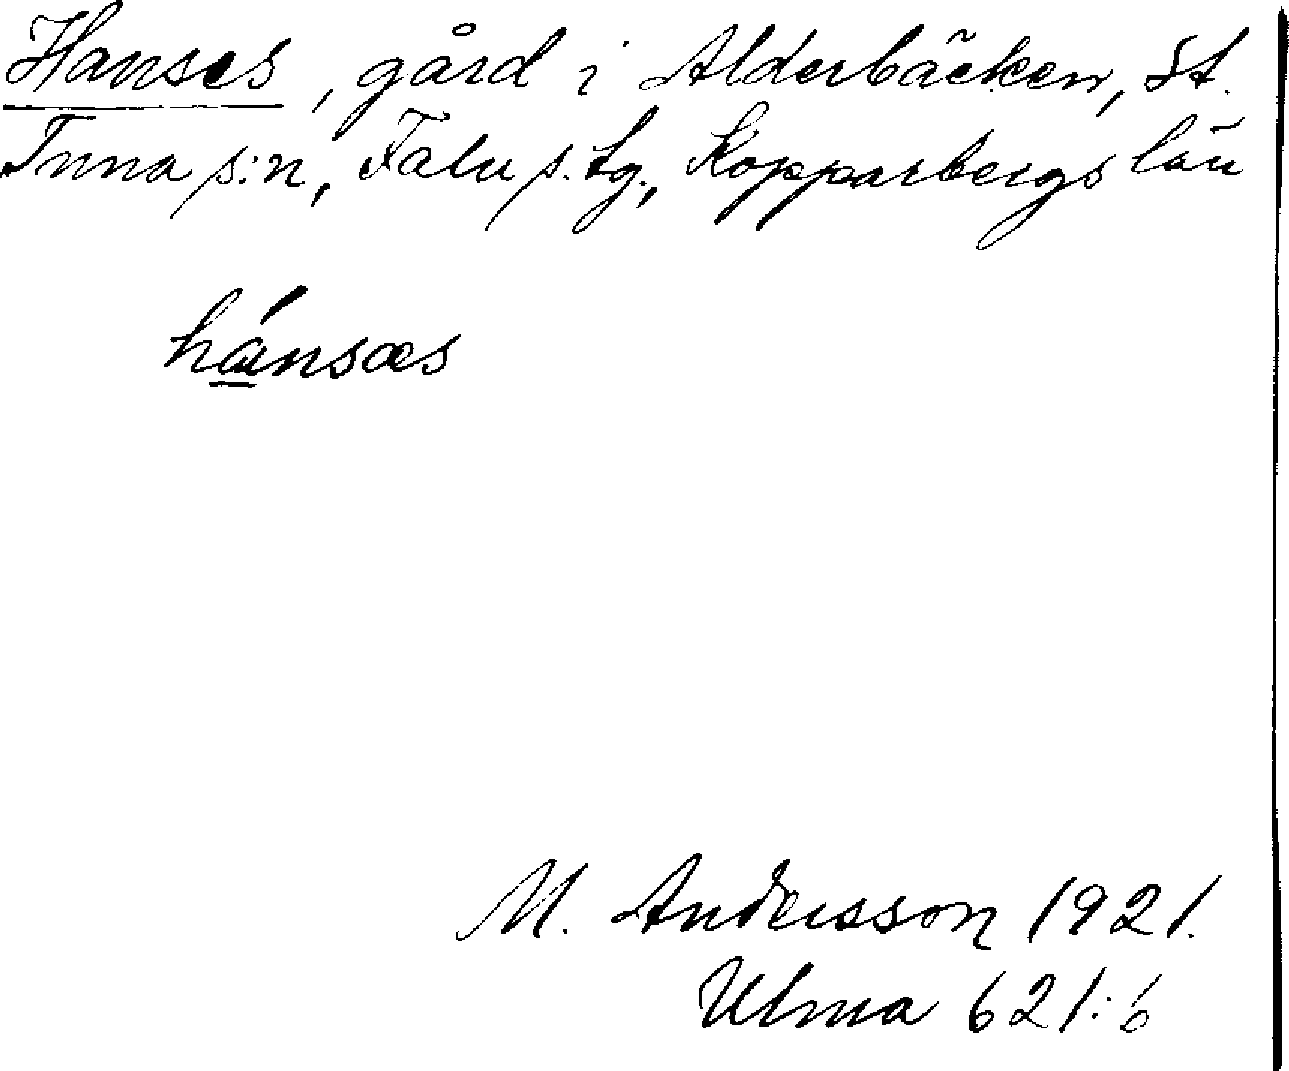 Hanses, gård i Alderbäcken, St.
Tuna s:n, Falu s. tg., Kopparbergs län
hánsæs
M. Andersson 1921.
Ulma 621:6